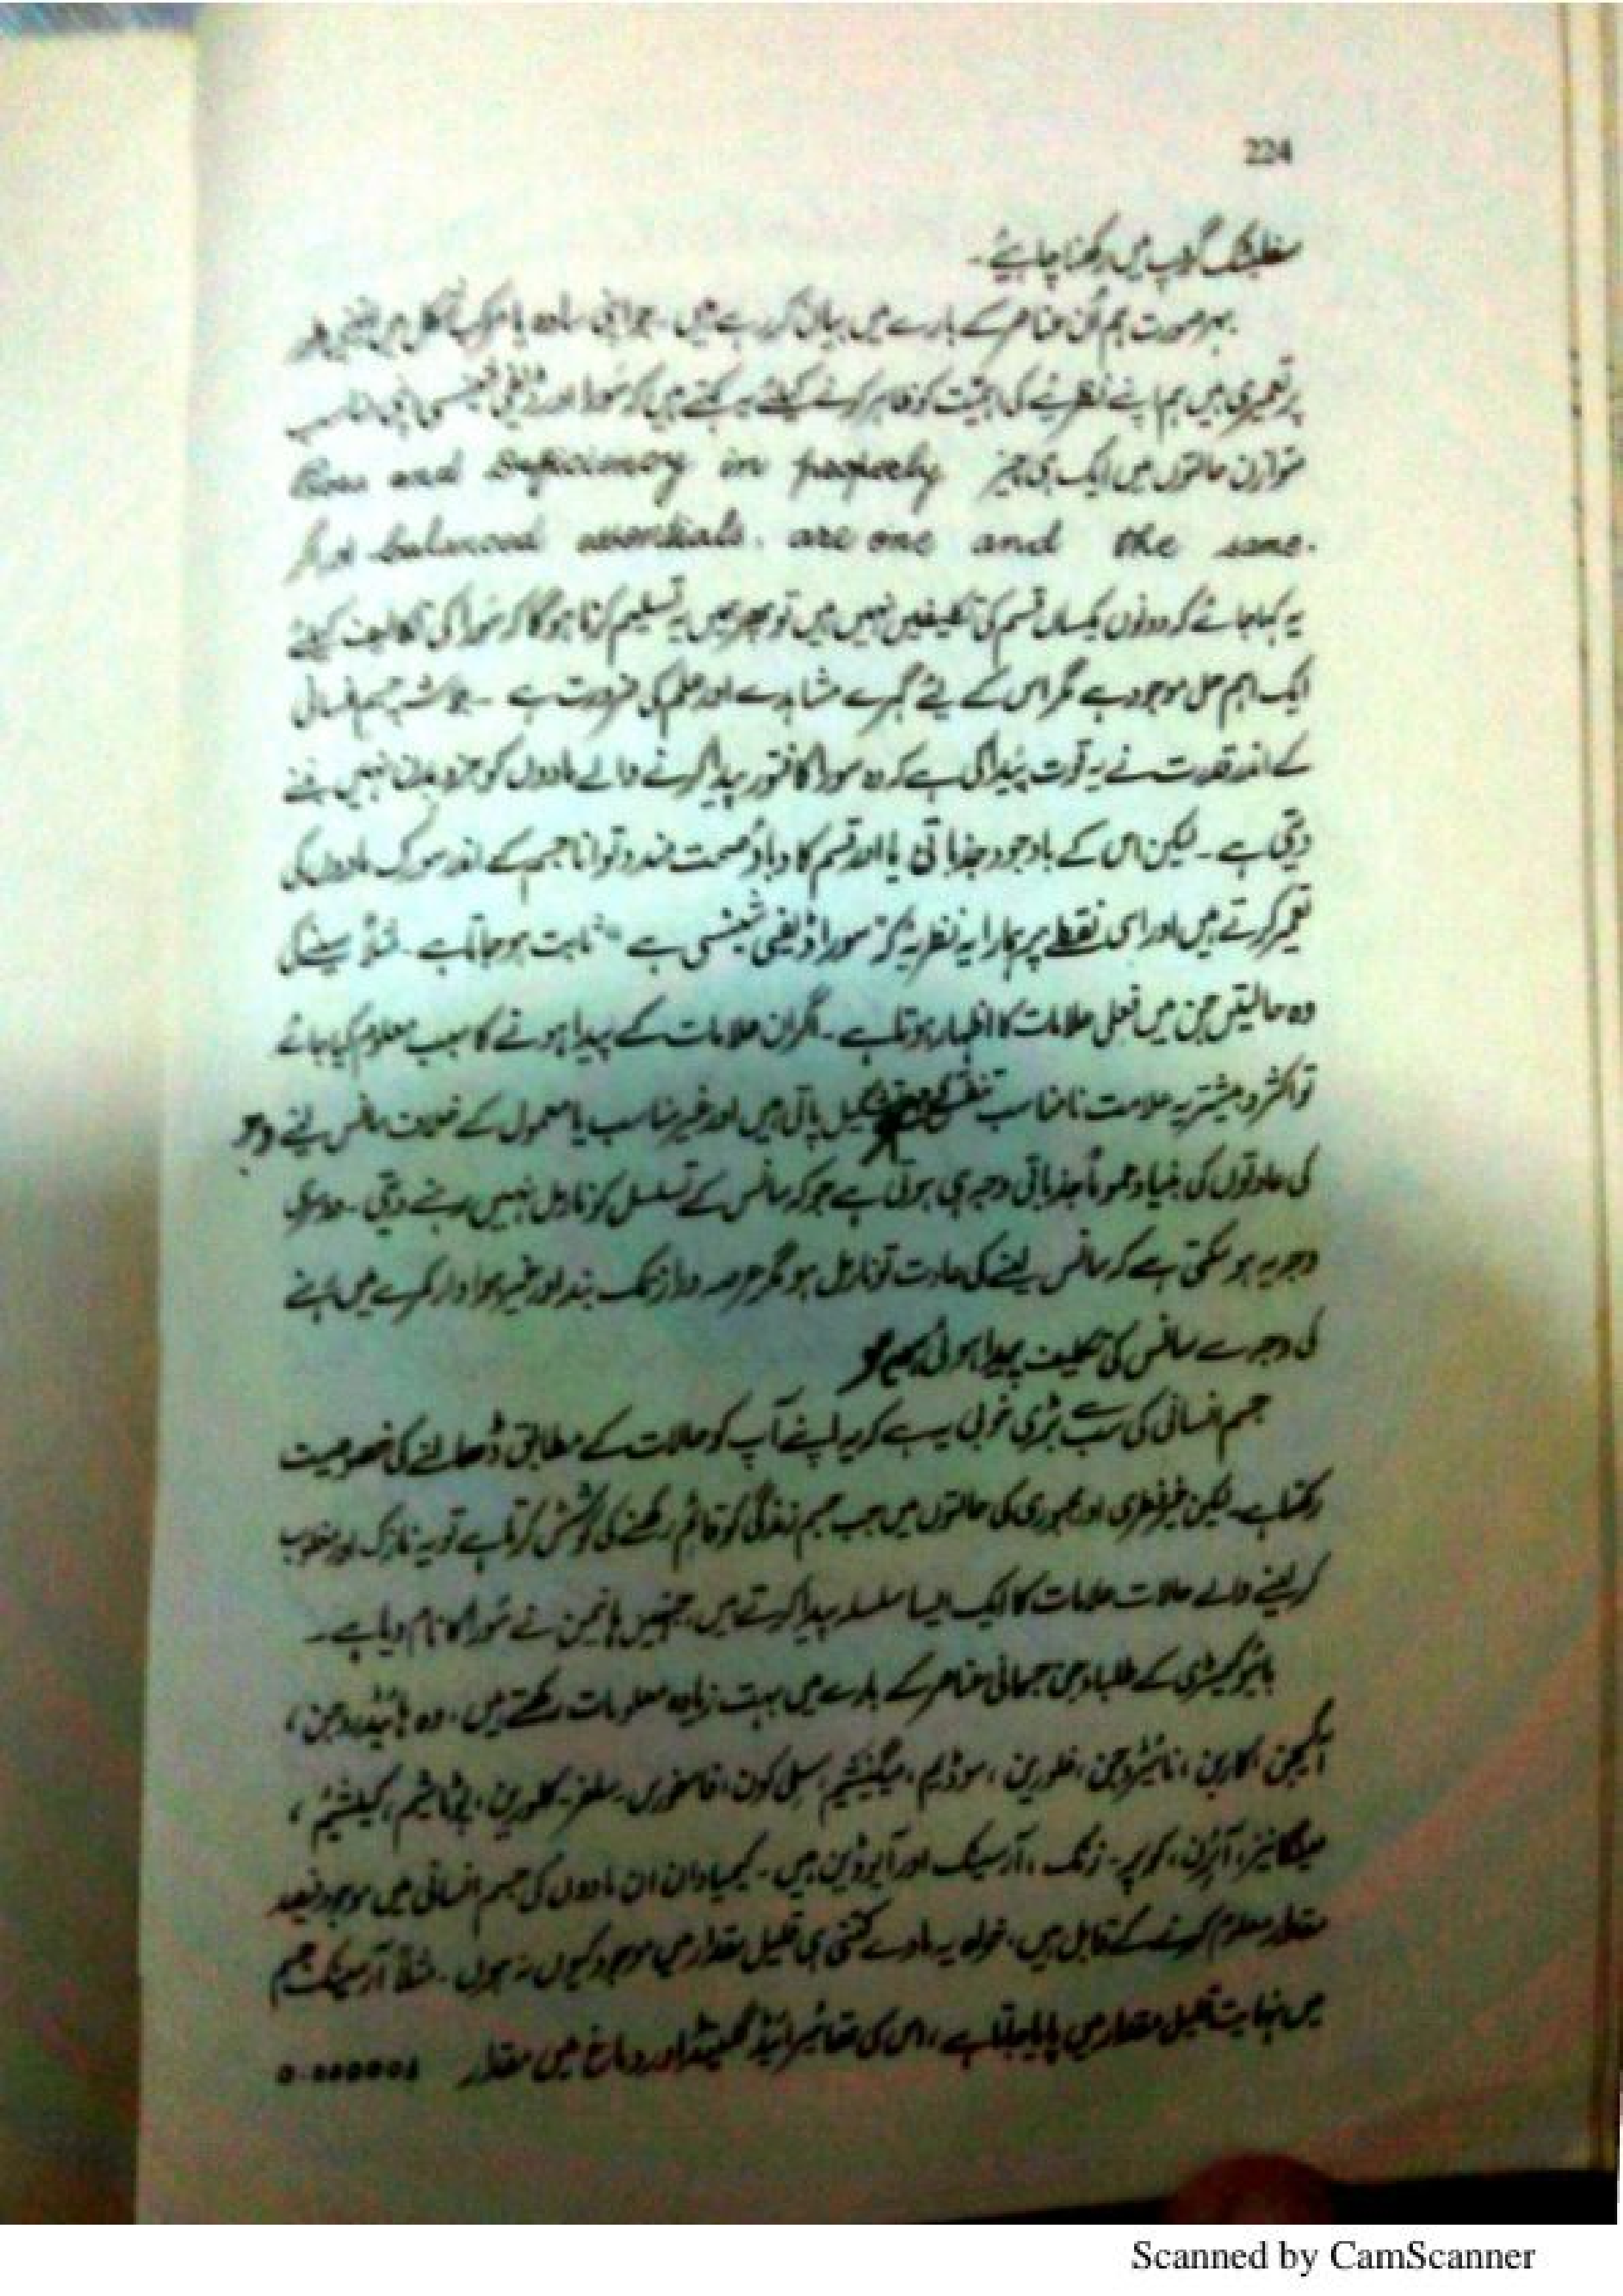 224
سفلیٹک گروپ میں رکھنا چاہیئے۔
بہر صورت ہم اُن عناصر کے بارے میں بیان کر رہے ہیں۔ جو اپنی سادہ یا مرکب شکل میں
پر تعمیری ہیں ہم اپنے نظریئے کی اہمیت کو ظاہر کرنے کیلئے یہ کہتے ہیں کہ سورا اور ڈیفی شینسی
متوازن حالتوں میں ایک ہی چیز and Deficiency in properly
اور اگر balanced essentials. are one and the same.
یہ کہا جائے کہ دونوں یکساں قسم کی تکلیفیں نہیں ہیں تو پھر ہمیں یہ تسلیم کرنا ہوگا کہ سورا کی تکالیف کیلئے
ایک اہم حل موجود ہے مگر اس کے لیے گہرے مشاہدے اور علم کی ضرورت ہے۔ جسم انسانی
کے اندر قدرت نے یہ قوت پیدا کی ہے کہ وہ سورا کا فتور پیدا کرنے والے مادوں کو جزو بدن نہیں بننے
دیتی ہے۔ لیکن اس کے باوجود جذباتی یا اور قسم کا دباؤ صحت مند و توانا جسم کے اندر سورک مادوں کی
تعمیر کرتے ہیں اور اسی نقطے پر ہمارا یہ نظریہ کہ سورا ڈیفی شینسی ہے" ثابت ہو جاتا ہے۔ مثلاً سینے کی
وہ حالتیں جن میں فعلی علامات کا اظہار ہوتا ہے۔ اگر ان علامات کے پیدا ہونے کا سبب معلوم کیا جائے
تو اکثر و بیشتر یہ علامت نامناسب تنفس پاتی ہیں اور غیر مناسب یا معمول کے خلاف سانس لینے
کی عادتوں کی بنیاد عموماً جذباتی وجہ ہی ہوتی ہے جو کہ سانس کے تسلسل کو نارمل نہیں رہنے دیتی۔ دوسری
وجہ یہ ہو سکتی ہے کہ سانس لینے کی عادت تو نارمل ہو مگر عرصہ دراز تک بند اور غیر ہوادار کمرے میں رہنے
کی وجہ سے سانس کی تکلیف پیدا ہوئی
جسم انسانی کی سب سے بڑی خوبی یہ ہے کہ یہ اپنے آپ کو حالات کے مطابق ڈھالنے کی خصوصیت
رکھتا ہے۔ لیکن غیر فطری اور مجبوری کی حالتوں میں جب جسم زندگی کو قائم رکھنے کی کوشش کرتا ہے تو یہ نازک اور مغلوب
کر لینے والے حالات علامات کا ایک ایسا سلسلہ پیدا کرتے ہیں، جنہیں ہانیمن نے سورا کا نام دیا ہے۔
بائیوکیمسٹری کے طلباء جن جسمانی عناصر کے بارے میں بہت زیادہ معلومات رکھتے ہیں، وہ ہائیڈروجن،
آکسیجن، کاربن، نائٹروجن، فلورین، سوڈیم، میگنیشیم، سلی کون، فاسفورس۔ سلفر۔ کلورین، پوٹاشیم، کیلشیئم،
مینگانیز، آئرن، کوپر۔ زنک، آرسینک اور آیوڈین ہیں۔ کیمیادان ان مادوں کی جسم انسانی میں موجود فیصد
مقدار معلوم کرنے کے قابل ہیں، خواہ یہ مادے کتنی ہی قلیل مقدار میں موجود کیوں نہ ہوں۔ مثلاً آرسینک جسم
میں نہایت قلیل مقدار میں پایا جاتا ہے، اس کی تھائیرائیڈ گلینڈ اور دماغ میں مقدار
Scanned by CamScanner